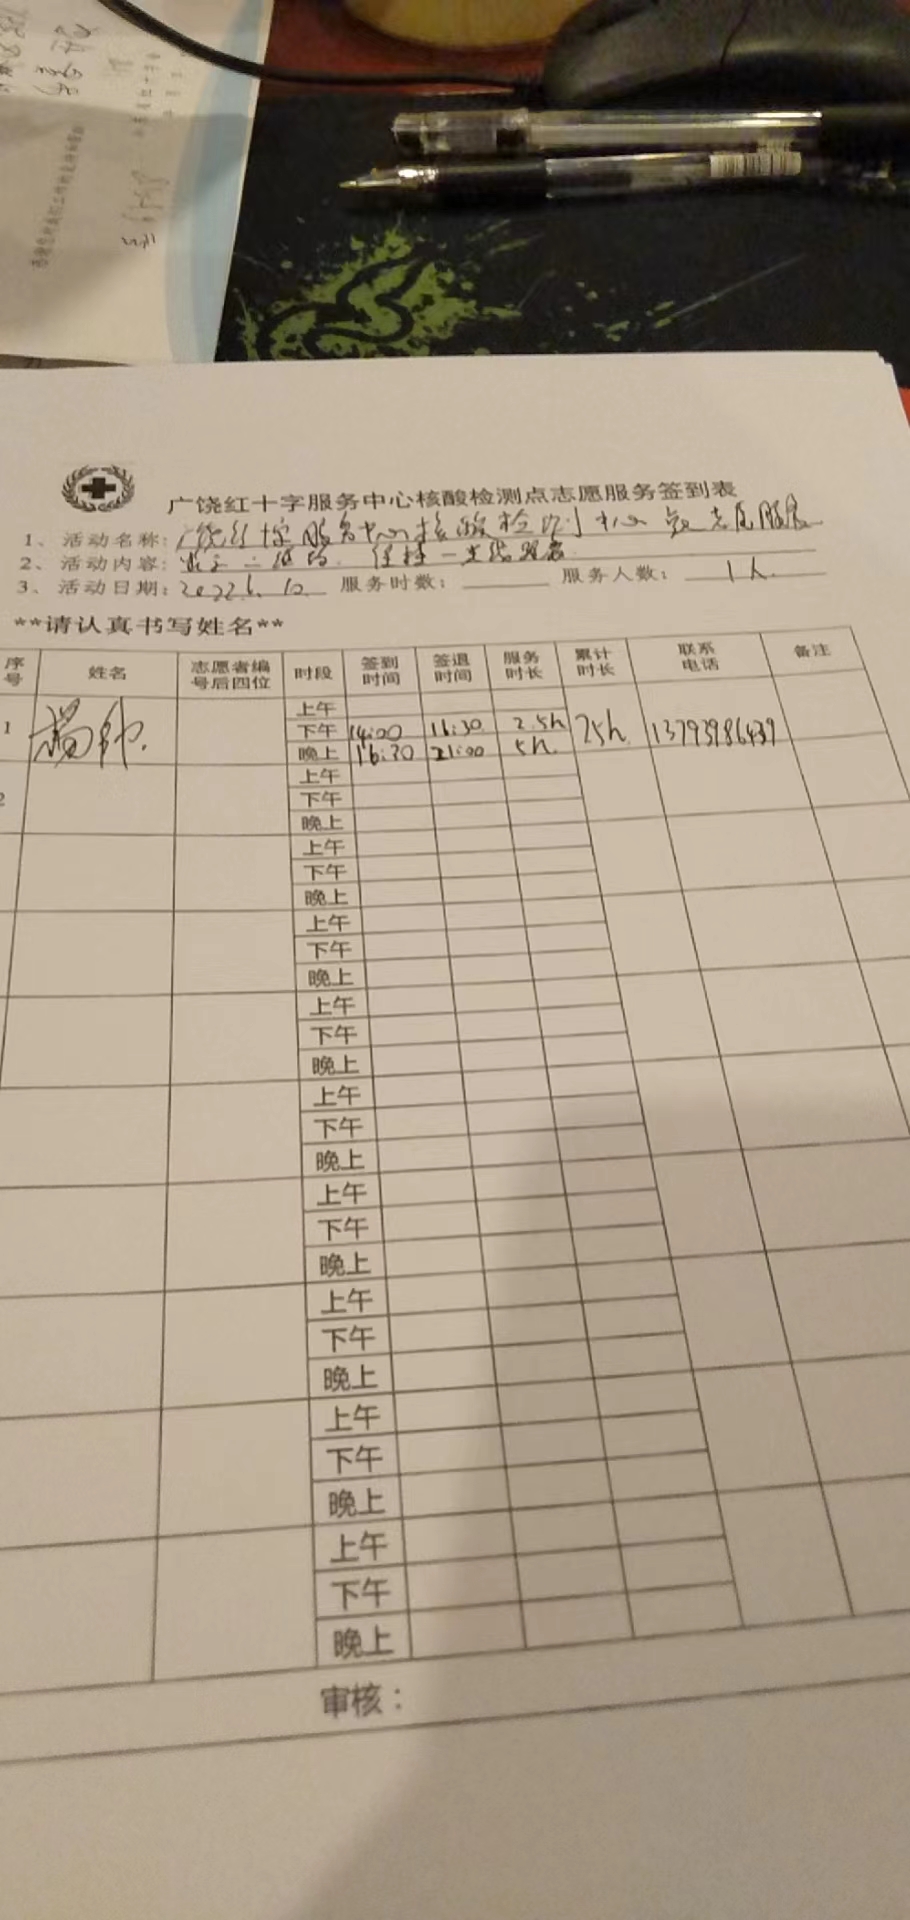 广饶红十字服务中心核酸检测点志愿服务签到表
1、活动名称：广饶红十字服务中心核酸检测中心 志愿服务
2、活动内容： 二维码 保持一米线
3、活动日期：2022.6.12 服务时数： 服务人数：1人
**请认真书写姓名**
序号 姓名 志愿者编号后四位 时段 签到时间 签退时间 服务时长 累计时长 联系电话 备注
1 上午
下午 14:00 16:30 2.5h 75h 13793986439
晚上 16:30 21:00 5h
2 上午
下午
晚上
上午
下午
晚上
上午
下午
晚上
上午
下午
晚上
上午
下午
晚上
上午
下午
晚上
上午
下午
晚上
上午
下午
晚上
上午
下午
晚上
审核：